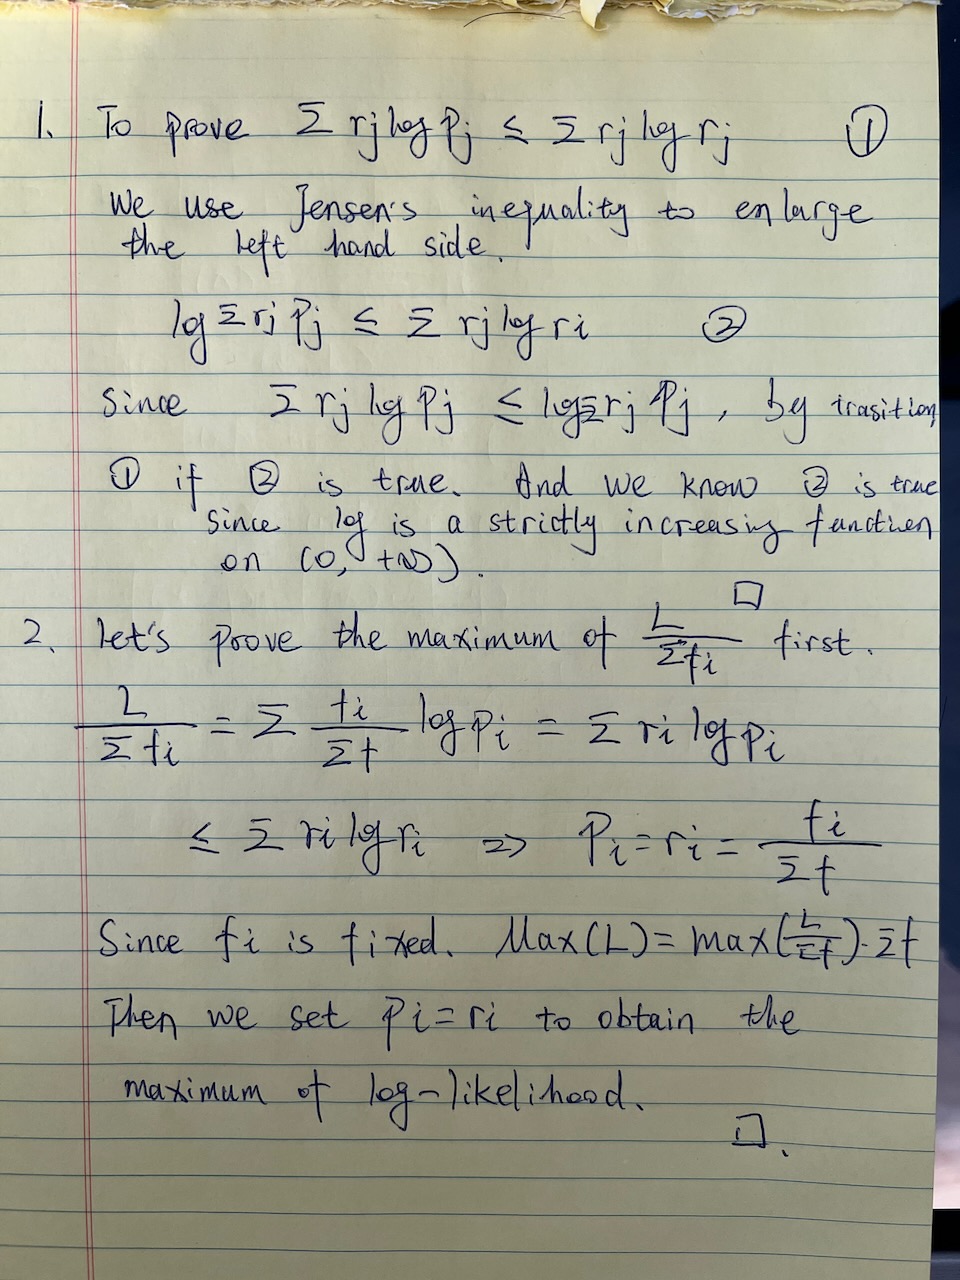 1. To prove Σ rj log Pj ≤ Σ rj log rj ①
We use Jensen's inequality to enlarge
the left hand side.
log Σ rj Pj ≤ Σ rj log ri ②
Since Σ rj log Pj ≤ log Σ rj Pj, by trasition
① if ② is true. And we know ② is true
since log is a strictly increasing function
on (0, +∞).
□
2. Let's prove the maximum of L/Σfi first.
L/Σfi = Σ fi/Σf log Pi = Σ ri log Pi
≤ Σ ri log ri ⇒ Pi = ri = fi/Σf
Since fi is fixed. Max(L) = max(L/Σf)·Σf
Then we set Pi = ri to obtain the
maximum of log-likelihood.
□.